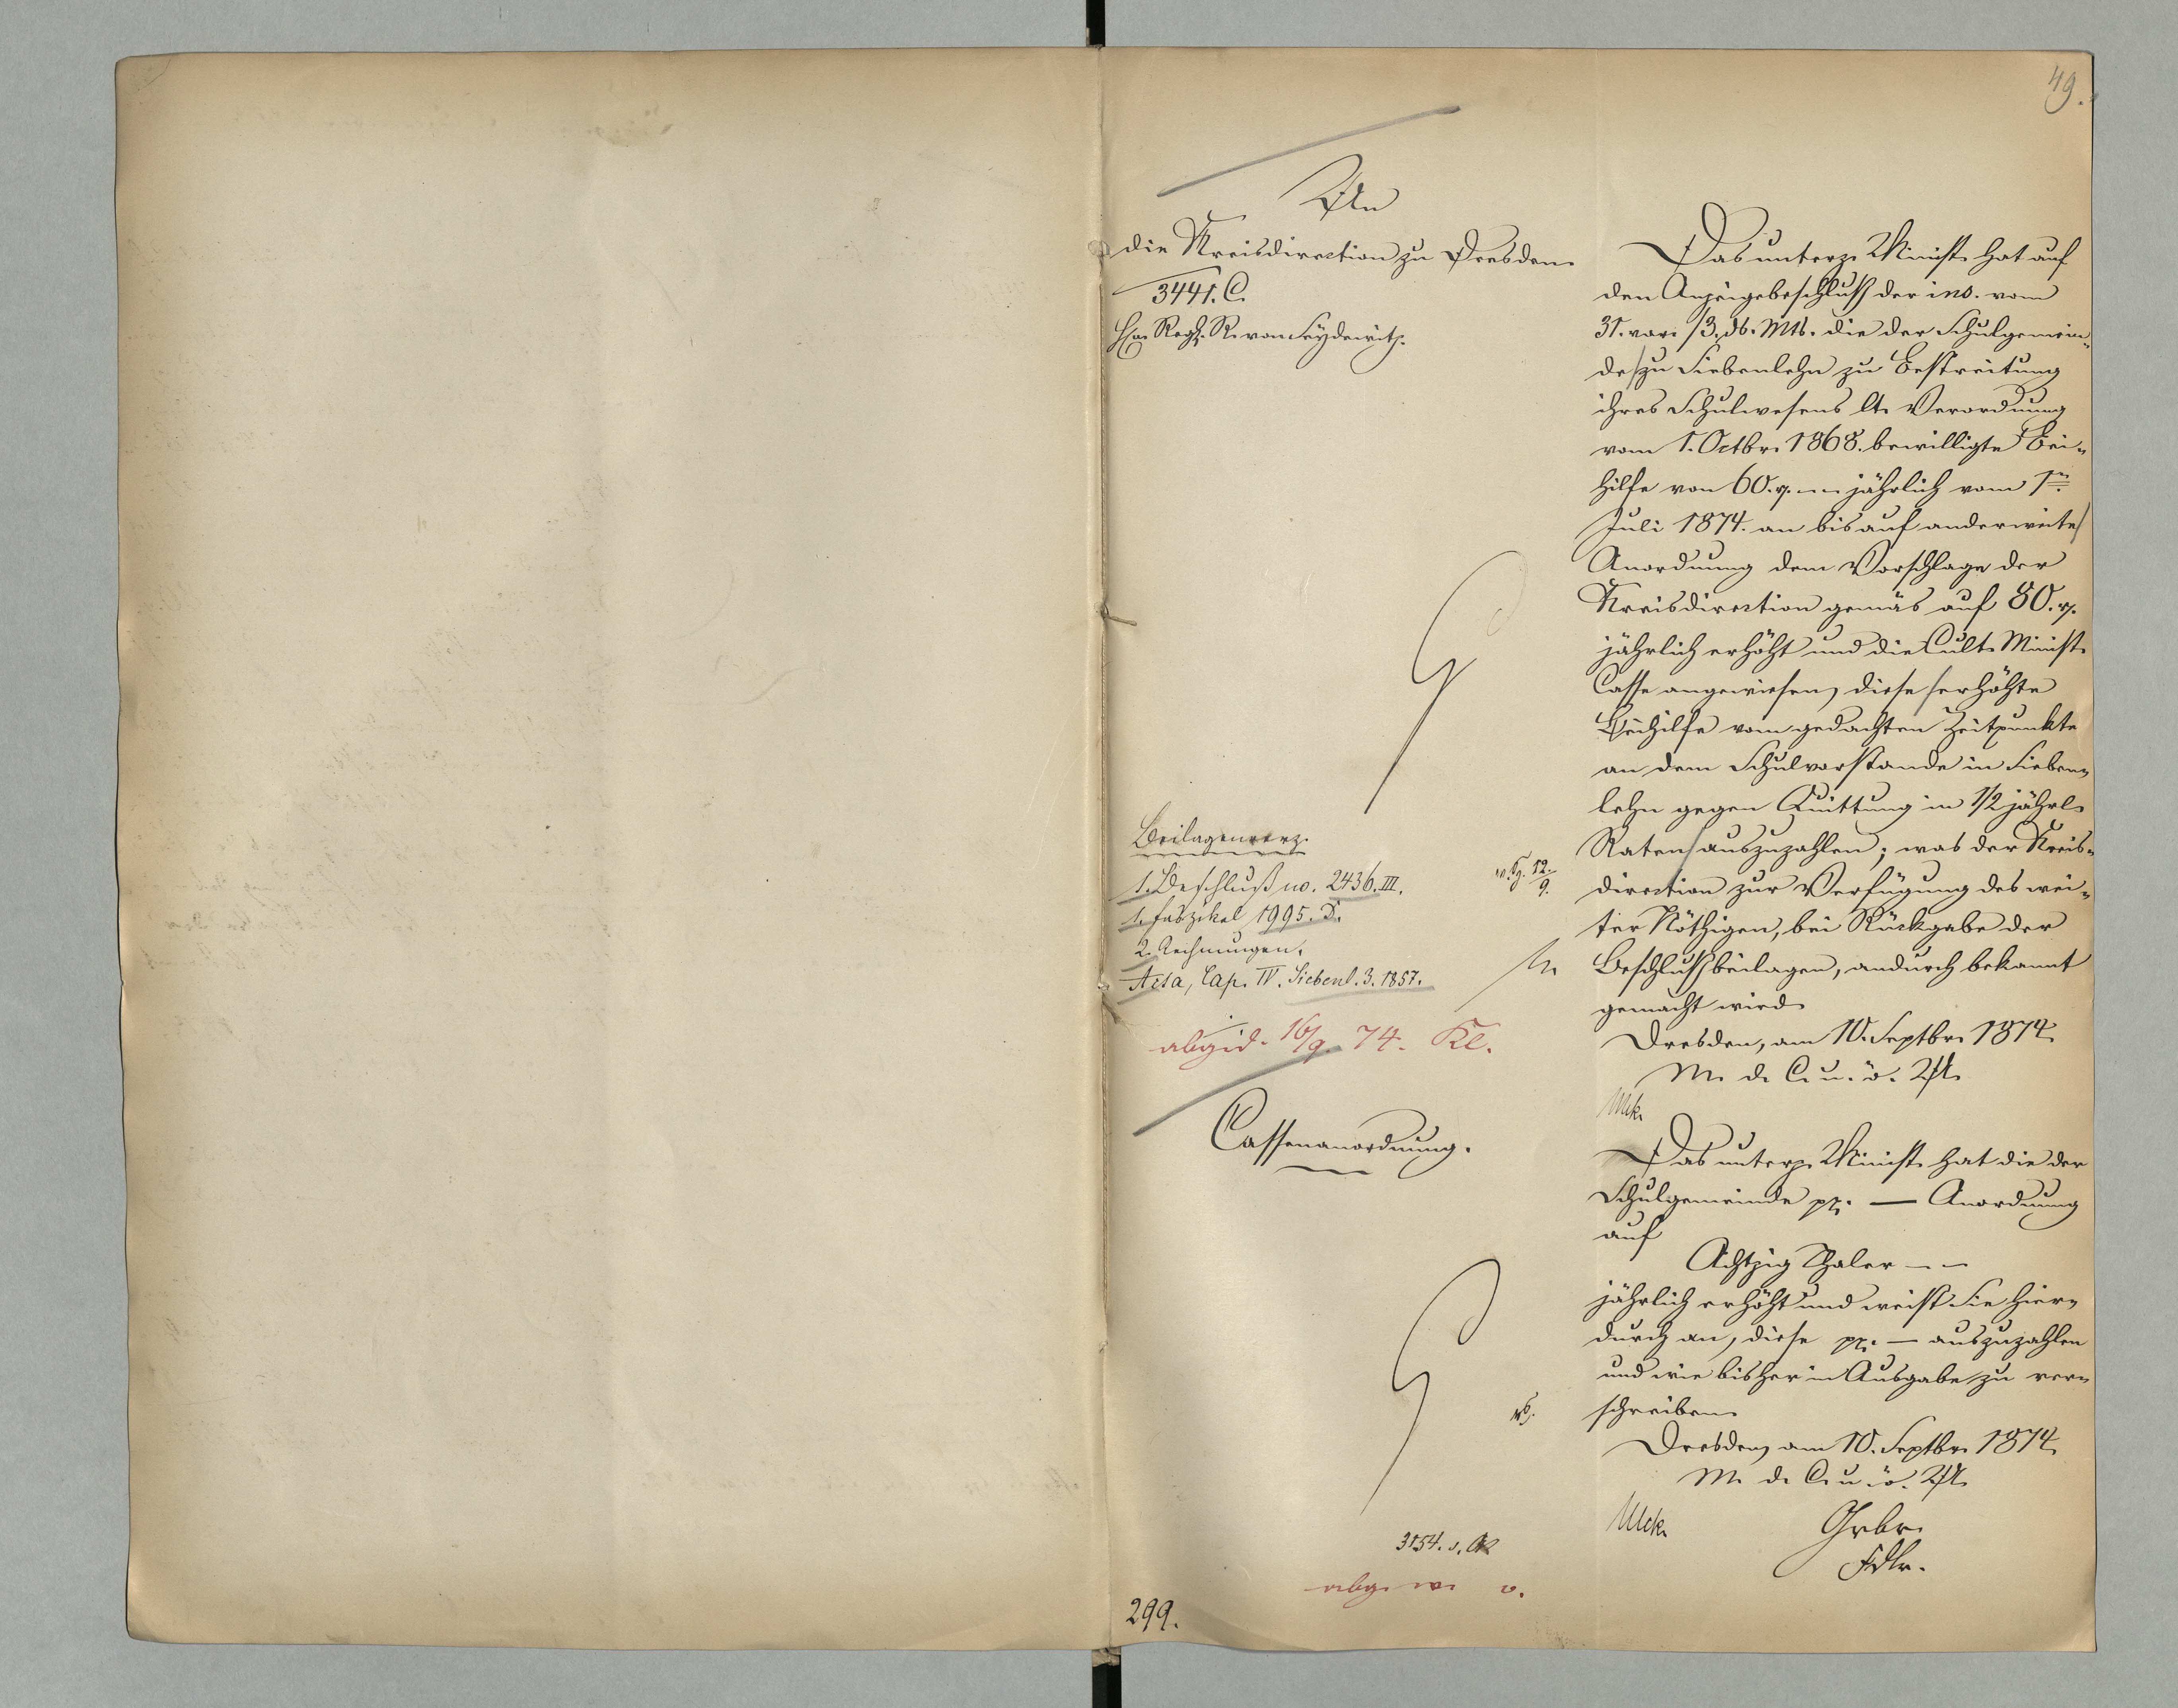 49.
An
die Kreisdirection zu Dresden.
3441. C.
H. Reg. R. von Seydewitz.
Das unterz. Minist. hat auf
den Anzeigebeschluß der ins. vom
31. vor. /3. ds. Mts. die der Schulgemein-
de zu Siebenlehn zu Bestreitung
ihres Schulwesens lt. Verordnung
vom 1. Octbr. 1868. bewilligte Bei-
hilfe von 60. jährlich vom 1.
Juli 1874. an bis auf anderweite
Anordnung dem Vorschlage der
Kreisdirection gemäs auf 80.
jährlich erhöht und die Cult. Minist.
Casse angewiesen, diese erhöhte
Beihilfe vom gedachten Zeitpunkte
an dem Schulvorstande in Sieben-
lehn gegen Quittung in 1/2 jährl.
Raten auszuzahlen; was der Kreis-
direction zur Verfügung des wei-
ter Nöthigen, bei Rückgabe der
Beschlußbeilagen, andurch bekannt
gemacht wird.
Dresden, am 10. Septbr. 1874.
M. d. C. u. ö. U.
Beilagenverz.
1. Beschluß no. 2436. III.
1. Faszikel 1995. D.
2. Rechnungen.
Acta, Cap. IV. Siebenl. 3. 1857.
12./9.
abgid. 16/9. 74. Kl.
Cassenanordnung.
Das unterz. Minist. hat die der
Schulgemeinde pp. — Anordnung
auf
Achtzig Thaler — —
jährlich erhöht und weist Sie hier-
durch an, diese pp. — auszuzahlen
und wie bisher in Ausgabe zu ver-
schreiben.
Dresden, am 10. Septbr. 1874.
M. d. C. u. ö. U.
Grbr.
Fdlr.
3154.
abg. w. o.
299.